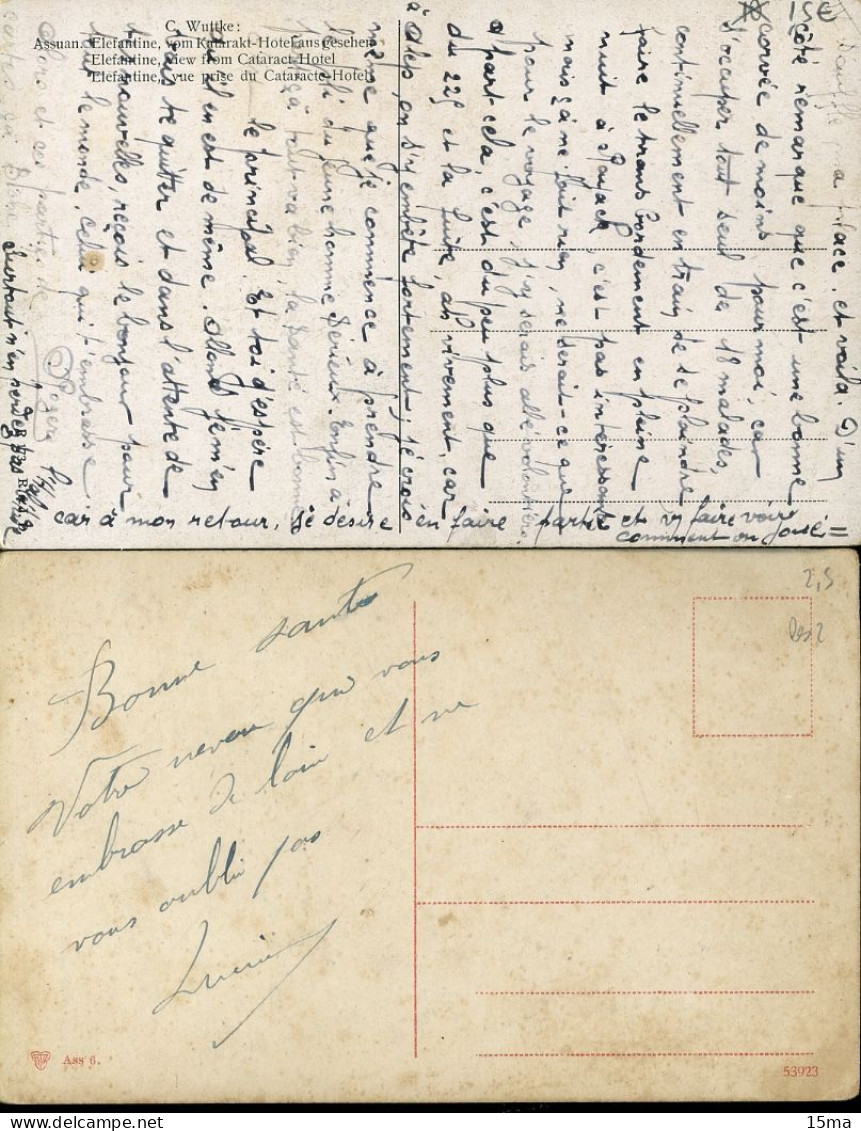 C. Wuttke:
Assuan. Elefantine, vom Katarakt-Hotel aus gesehen
Elefantine, view from Cataract-Hotel
Elefantine, vue prise du Cataracte-Hotel
15€
ma place. et voilà. D'un
côté remarque que c'est une bonne
corvée de moins, pour moi, car
s'occuper tout seul de 18 malades,
continuellement en train de se plaindre
faire le transbordement en pleine
nuit à c'est pas intéressant
mais ça ne fait rien, ne serait-ce que
pour le voyage j'y serais allé volontiers
à part cela, c'est du peu plus que
du 225 et la suite, ah vivement, car
à Alep, on s'y embête fortement, je crois
même que je commence à prendre
du jeune homme sérieux. Enfin à
ça tout va bien, la santé est bonne
le principal. Et toi j'espère
qu'il en est de même. Allons je m'en
vais te quitter et dans l'attente de
tes nouvelles, reçois le bonjour pour
tout le monde. Celui qui t'embrasse
Roger
Alors et ces parties de
cartes, ça
Surtout n'en
car à mon retour, je désire en faire partie et vs faire voir
comment on joue =
2,5
Bonne santé
Votre neveu qui vous
embrasse de loin et ne
vous oublie pas
Lucien
Ass 6.
53923
15ma